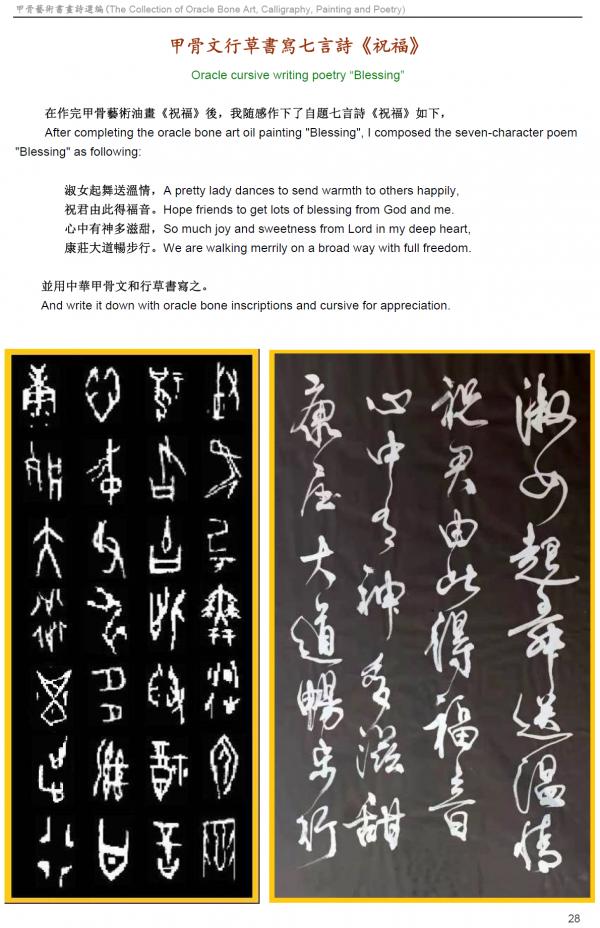 甲骨藝術書畫詩選編(The Collection of Oracle Bone Art, Calligraphy, Painting and Poetry)
甲骨文行草書寫七言詩《祝福》
Oracle cursive writing poetry “Blessing”
在作完甲骨藝術油畫《祝福》後，我隨感作下了自題七言詩《祝福》如下，
After completing the oracle bone art oil painting "Blessing", I composed the seven-character poem
"Blessing" as following:
淑女起舞送溫情，A pretty lady dances to send warmth to others happily,
祝君由此得福音。Hope friends to get lots of blessing from God and me.
心中有神多滋甜，So much joy and sweetness from Lord in my deep heart,
康莊大道暢步行。We are walking merrily on a broad way with full freedom.
並用中華甲骨文和行草書寫之。
And write it down with oracle bone inscriptions and cursive for appreciation.
淑女起舞送溫情
祝君由此得福音
心中有神多滋甜
康莊大道暢步行
28